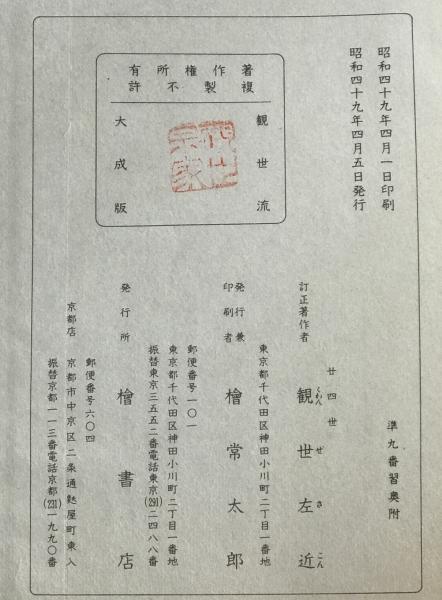 準九番習奥附
昭和四十九年四月一日印刷
昭和四十九年四月五日発行
著作権所有
複製不許
観世流
大成版
訂正著作者 廿四世 観世左近
くわんぜさこん
東京都千代田区神田小川町二丁目一番地
発行兼印刷者 檜常太郎
郵便番号一〇一
東京都千代田区神田小川町二丁目一番地
振替東京三五五二番電話東京(291)二四八八番
発行所 檜書店
郵便番号六〇四
京都店 京都市中京区二条通麩屋町東入
振替京都一一三番電話京都(231)一九九〇番